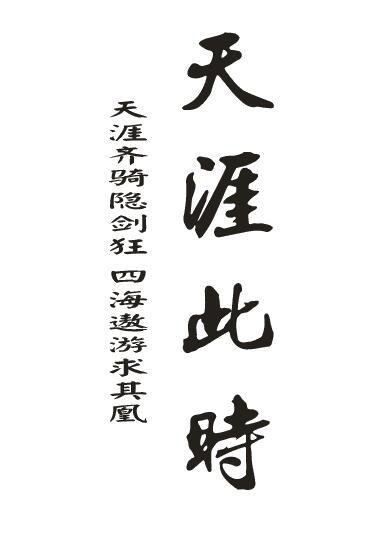 天涯此時
天涯齐骑隐剑狂 四海遨游求其凰